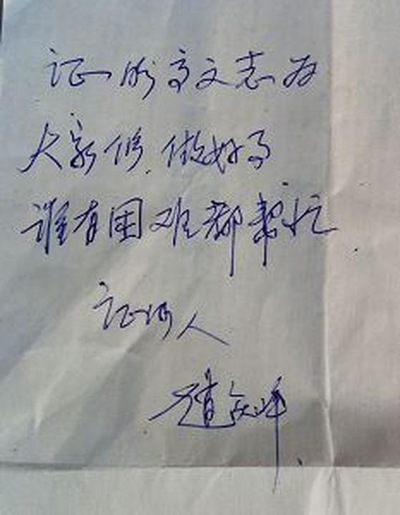 证明高文志为
大家修、做好事
谁有困难都帮忙
证明人
赵